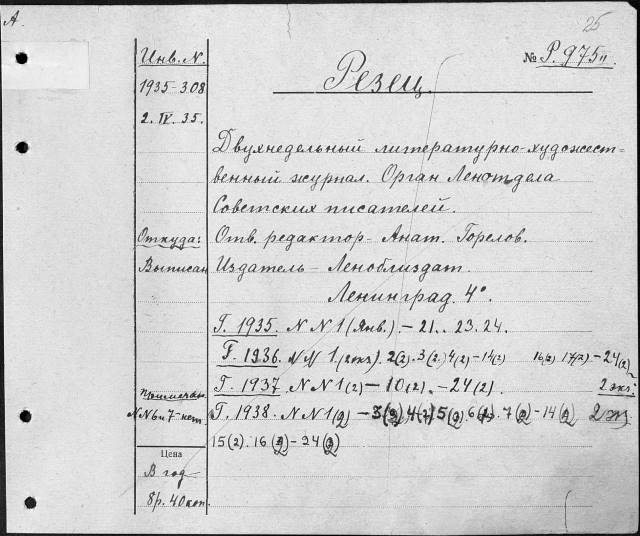 А.
25
Инв. N.
№ Р. 975 II
1935-308
Резец.
2. IV. 35.
Двухнедельный литературно-художест-
венный журнал. Орган Ленотдела
Советских писателей.
Откуда: Отв. редактор - Анат. Горелов.
Выписан Издатель - Леноблиздат.
Ленинград. 4°.
Г. 1935. NN 1 (Янв.) - 21.. 23. 24.
Г. 1936. NN 1. (2 экз). 2(2). 3(2). 4(2) - 14(2) 16(2) 17(2). - 24(2)
Г. 1937. NN 1(2) - 10(2). - 24(2). 2 экз.
Примечан.
NN 6 и 7 - нет. Г. 1938. NN 1(2) - 3(2) 4(2) 5(2). 6(2). 7(2) - 14(2) 2 экз
15(2). 16(2) - 24(2)
Цена
В год
8р. 40 коп.